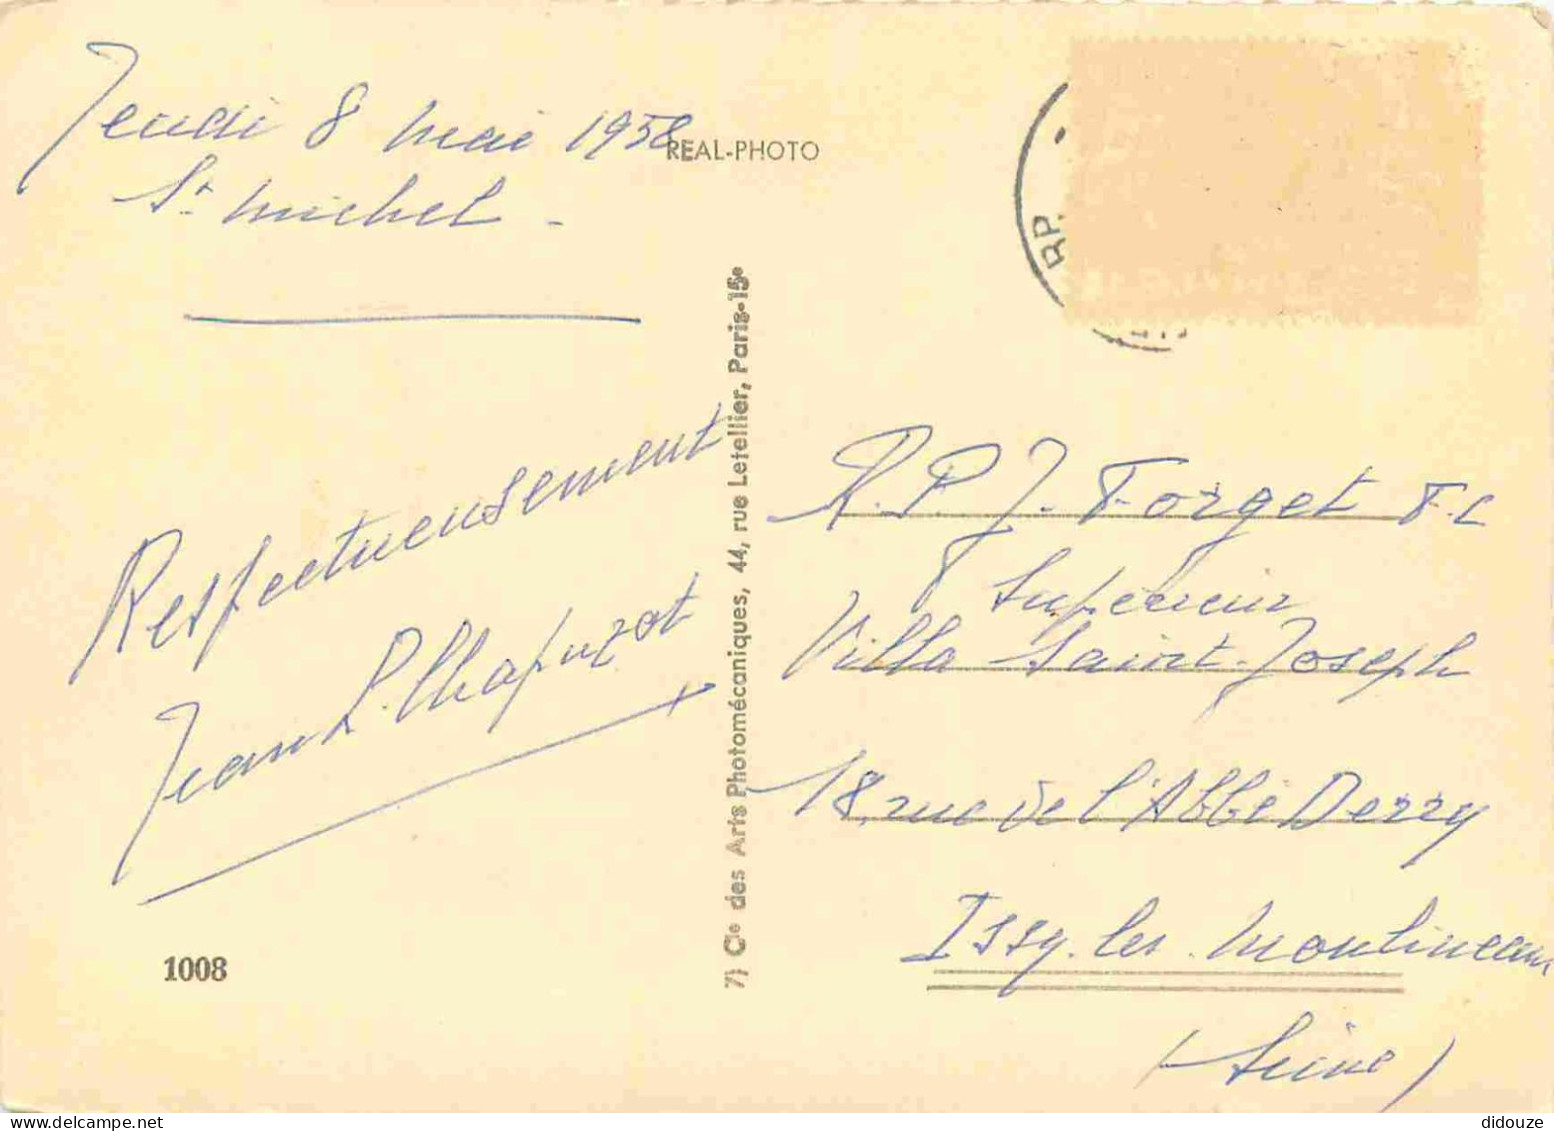 Jeudi 8 mai 1958
St michel -
REAL-PHOTO
R.P.
Respectueusement
Jean L. Chapuzot
1008
7) Cie des Arts Photomécaniques, 44, rue Letellier, Paris-15e
R.P. J. Forget F.C
Supérieur
Villa Saint-Joseph
18, rue de l'Abbé Derry
Issy-les-Moulineaux
(Seine)
didouze